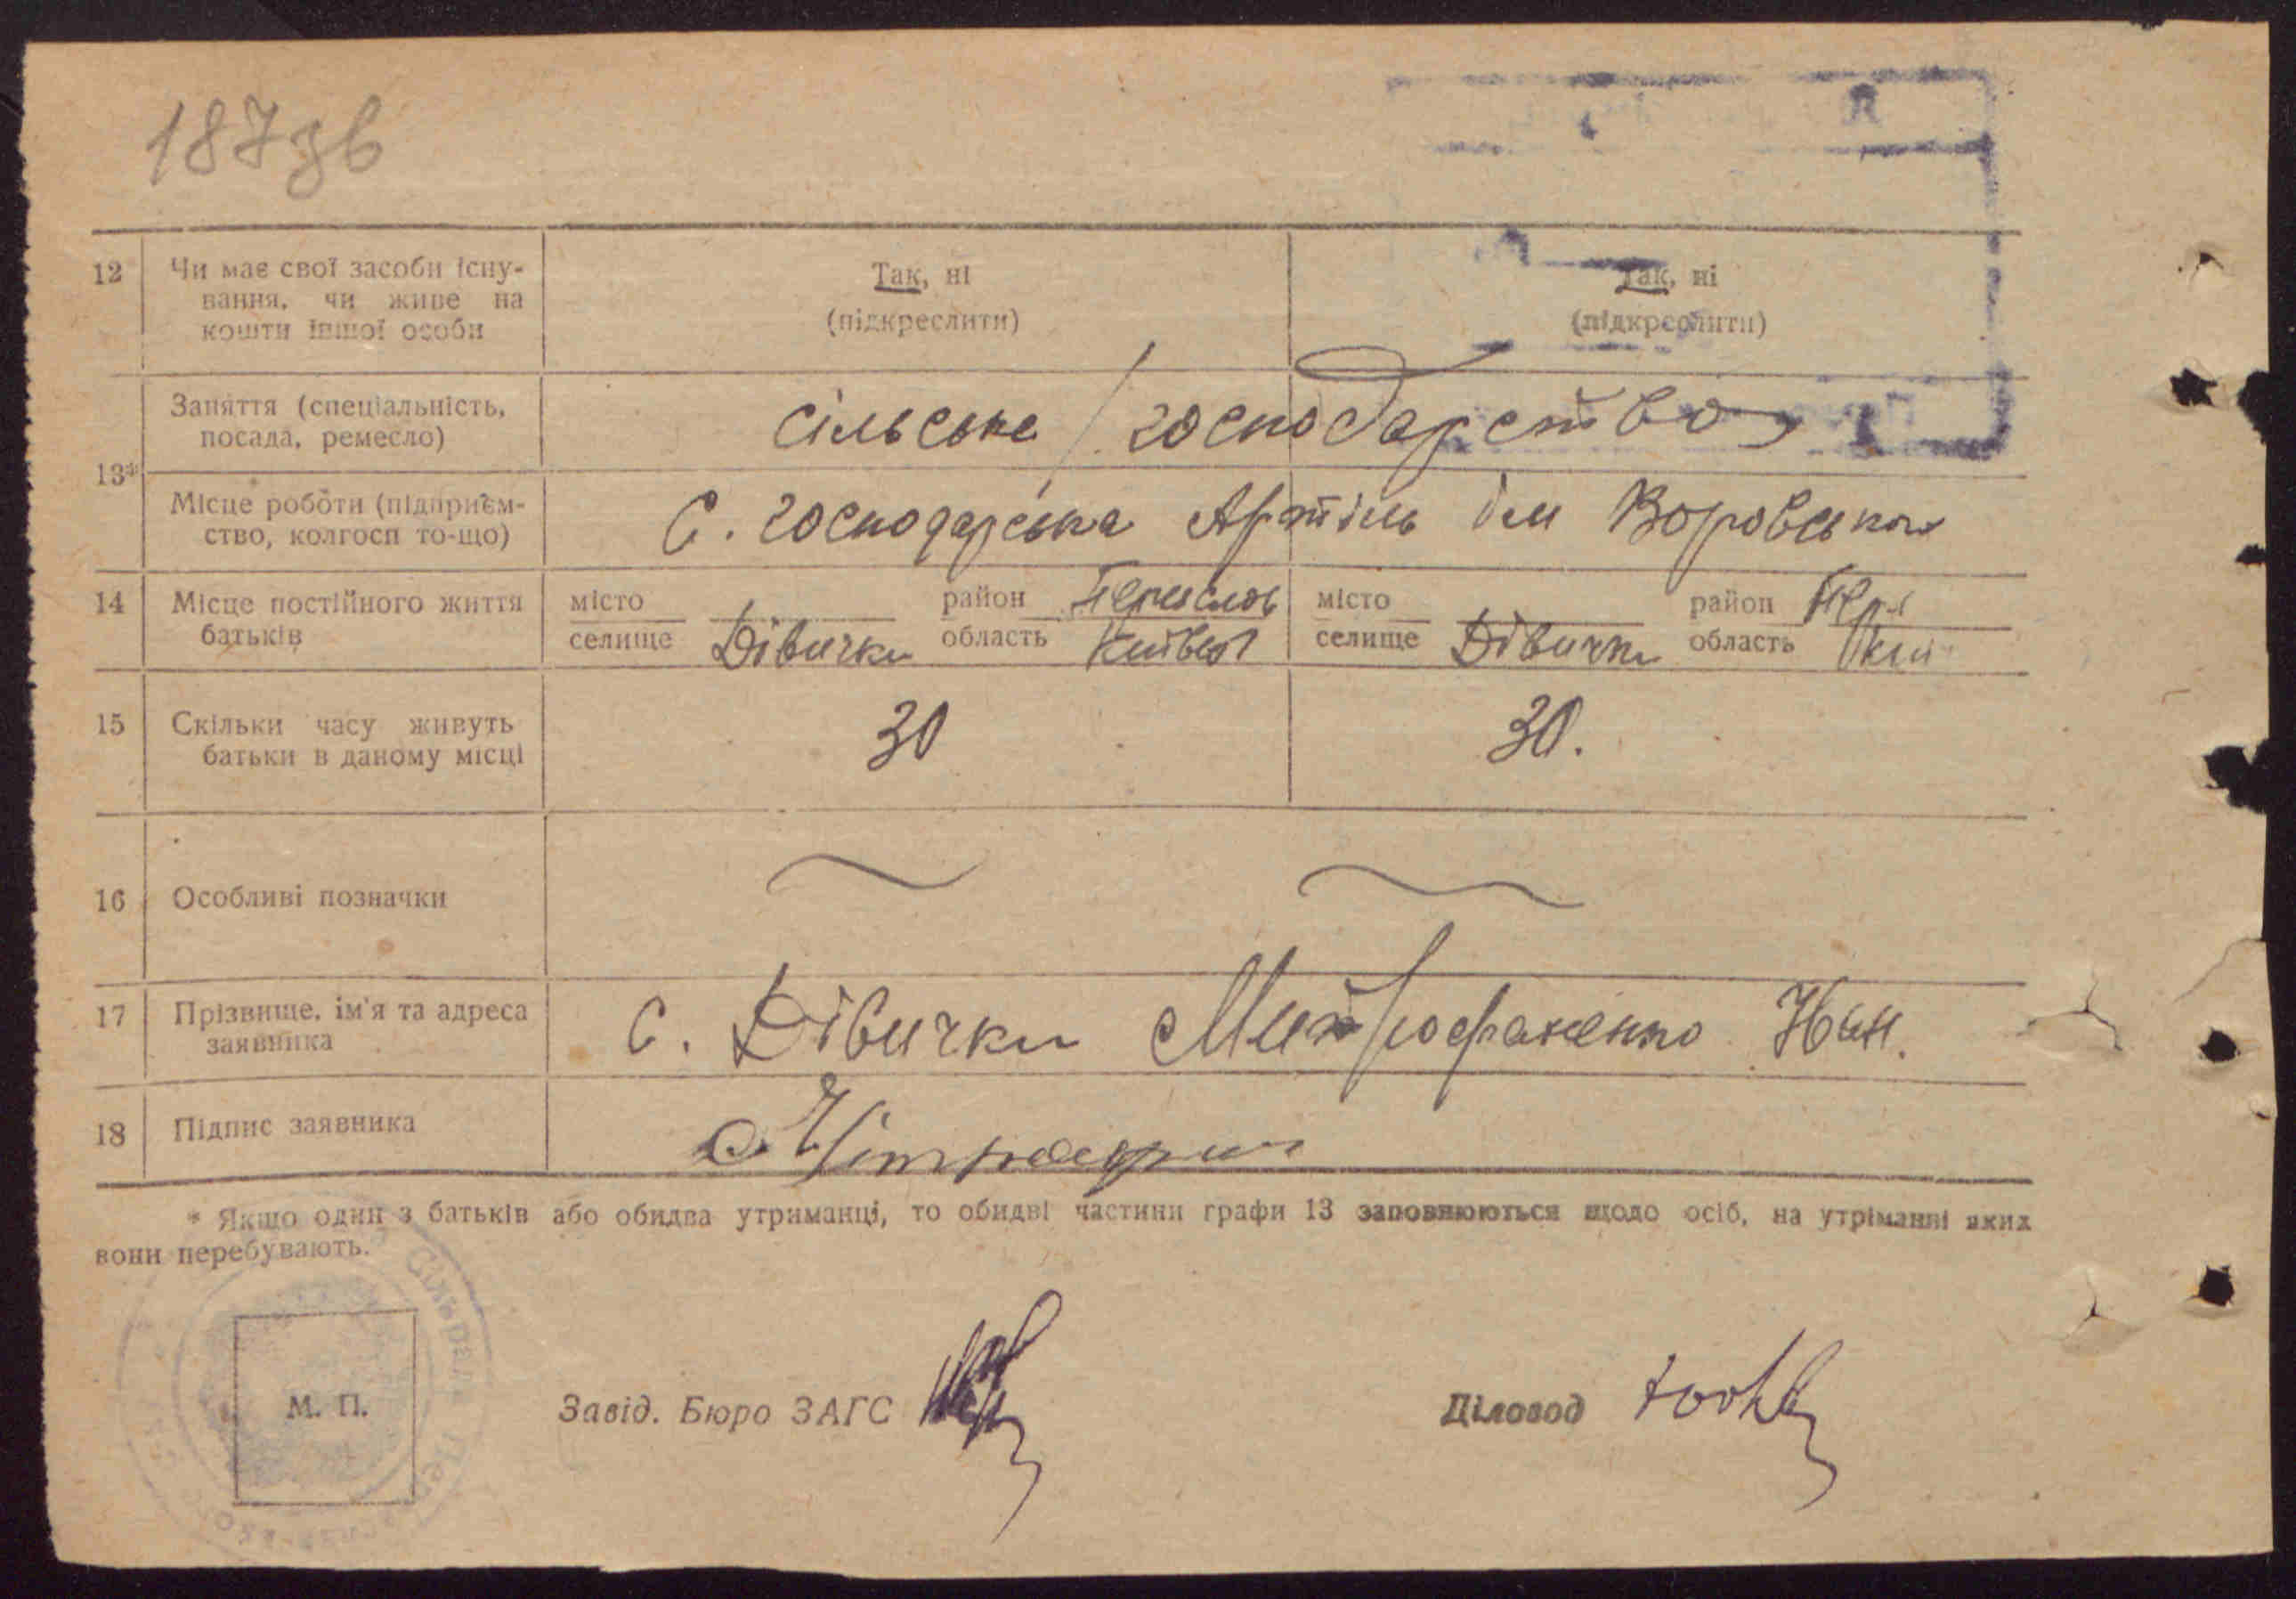 187зв
12 Чи має свої засоби існу-
вання, чи живе на
кошти іншої особи
Так, ні
(підкреслити)
Так, ні
(підкреслити)
13* Заняття (спеціальність,
посада, ремесло)
сільське господарство
Місце роботи (підприєм-
ство, колгосп то-що)
С. господарська Артіль ім Воровського
14 Місце постійного життя
батьків
місто район Переяслов
селище Дівички область Київськ
місто район Пер
селище Дівички область Киї
15 Скільки часу живуть
батьки в даному місці
30
30.
16 Особливі позначки
17 Прізвище, ім'я та адреса
заявника
С. Дівички Митрофаненко
18 Підпис заявника
* Якщо один з батьків або обидва утриманці, то обидві частини графи 13 заповнюються щодо осіб, на утріманні яких
вони перебувають.
М. П.
Завід. Бюро ЗАГС
Діловод